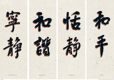 和平
恬静
和谐
宁静